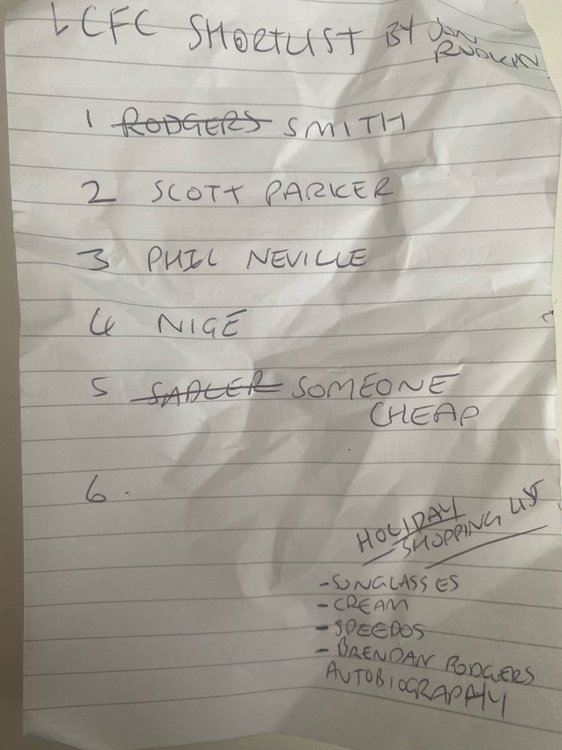 LCFC SHORTLIST BY JON
RUDKIN
1 RODGERS SMITH
2 SCOTT PARKER
3 PHIL NEVILLE
4 NIGE
5 SADLER SOMEONE
CHEAP
6.
HOLIDAY
SHOPPING LIST
- SUNGLASSES
- CREAM
- SPEEDOS
- BRENDAN RODGERS
AUTOBIOGRAPHY